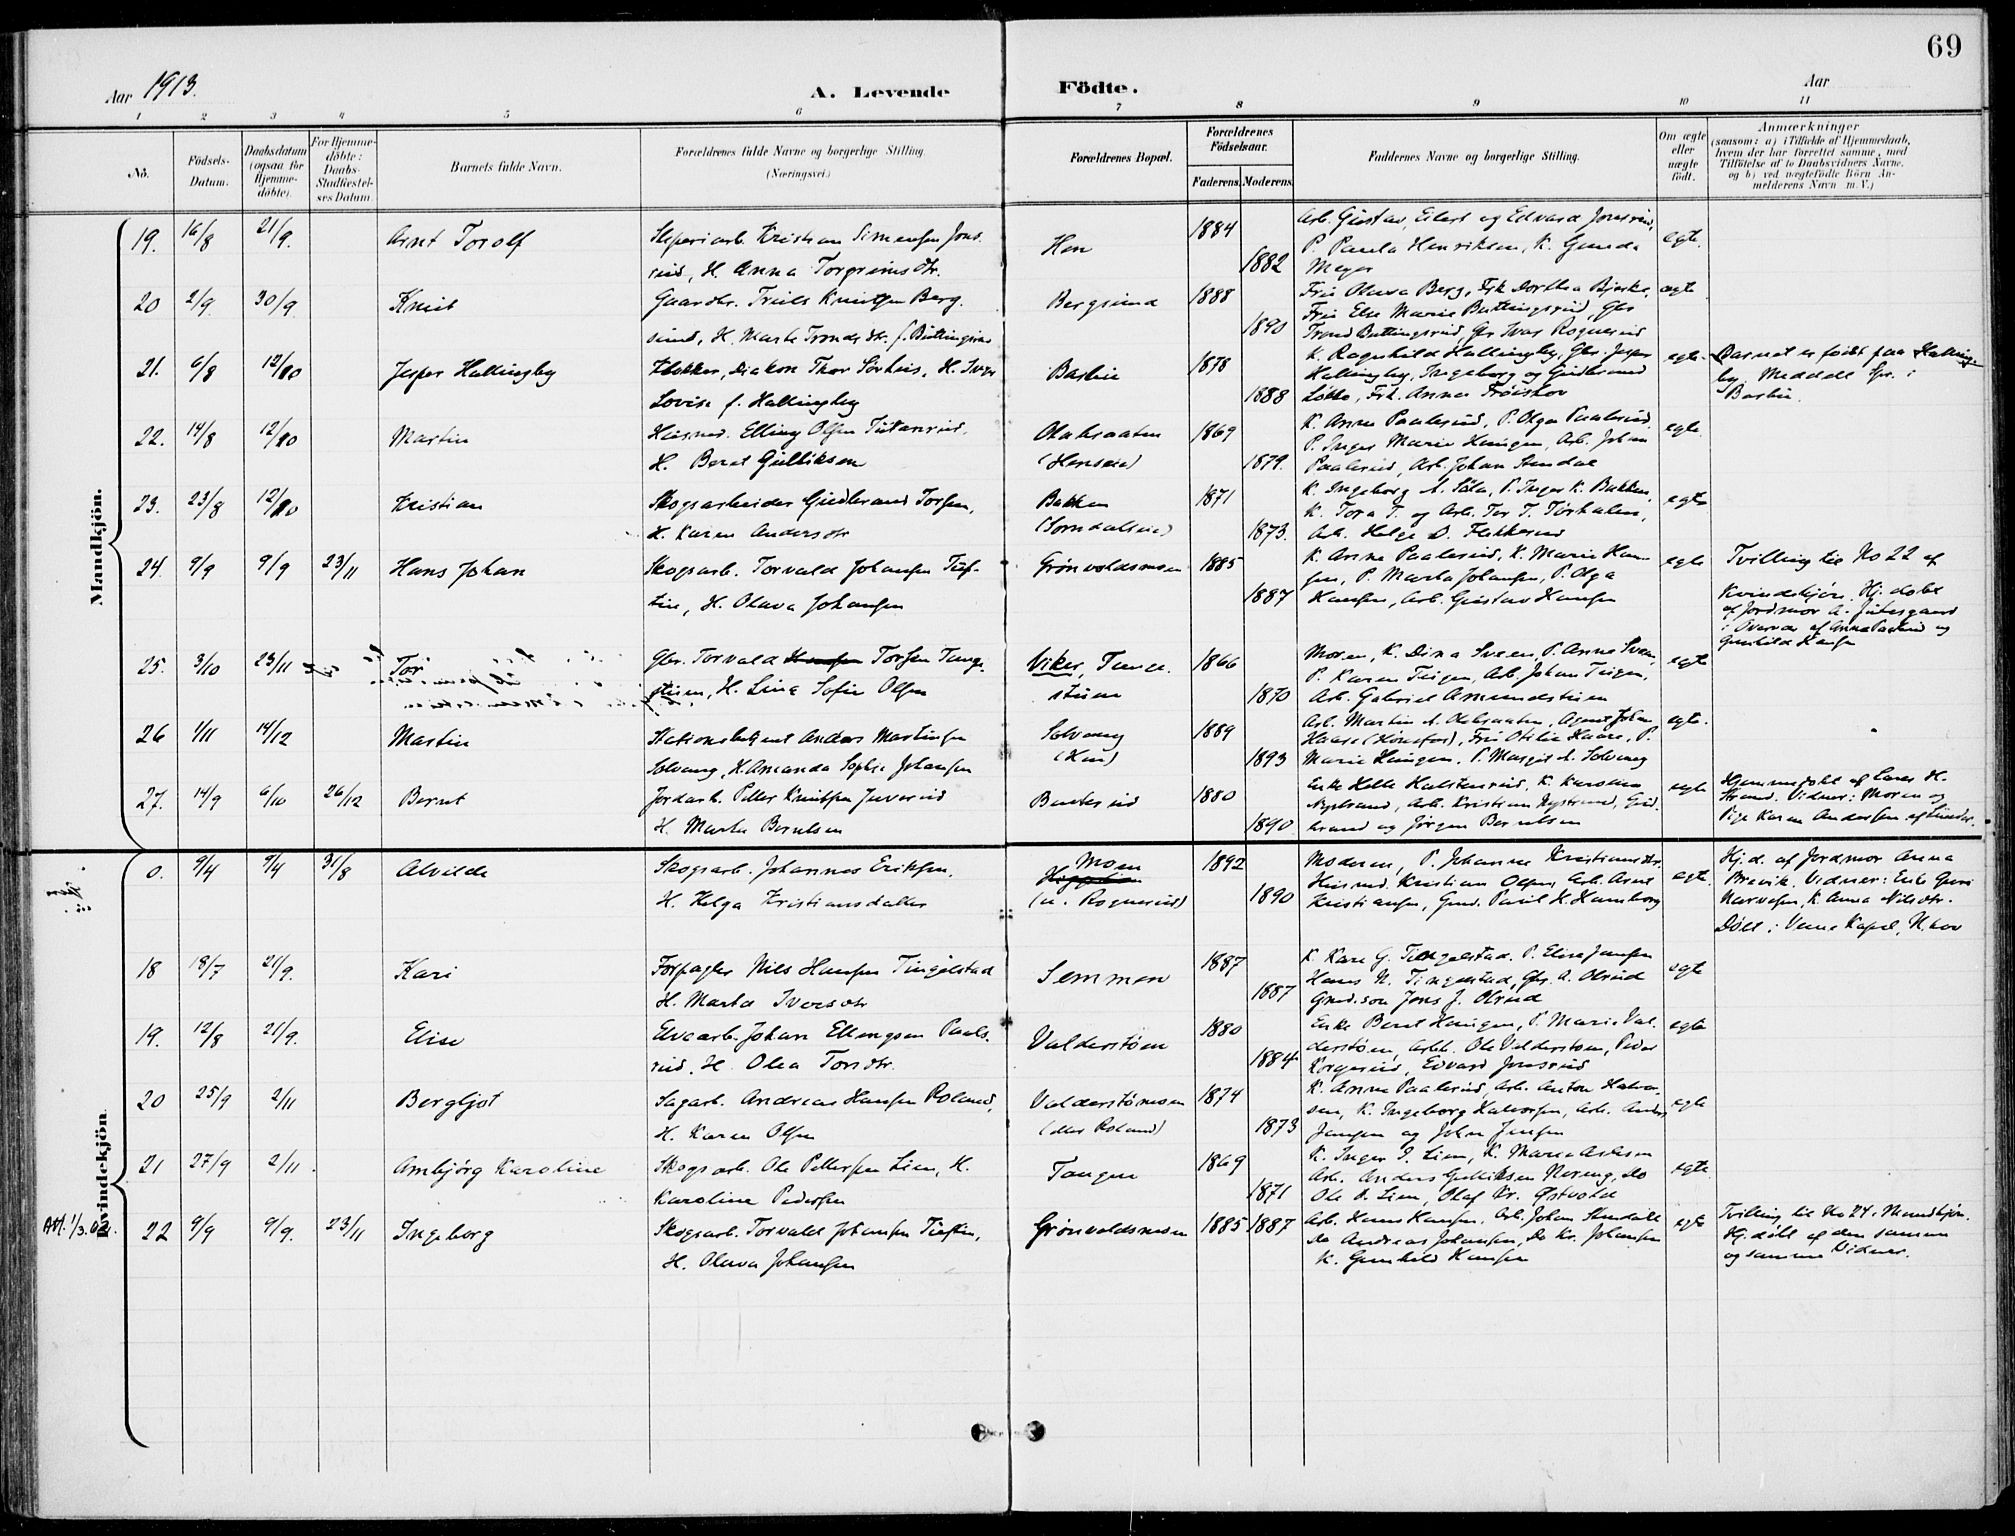 69
Aar 1913.
A. Levende Födte.
Aar
1 2 3 4 5 6 7 8 9 10 11
No.
Födsels-Datum.
Daabsdatum (ogsaa for Hjemme-döbte).
For Hjemme-döbte: Daabs-Stadfæstel-ses Datum.
Barnets fulde Navn.
Forældrenes fulde Navne og borgerlige Stilling.
(Næringsvei.)
Forældrenes Bopæl.
Forældrenes Födselsaar.
Faderens. Moderens.
Faddernes Navne og borgerlige Stilling.
Om ægte eller uægte födt.
Anmærkninger
(saasom: a) i Tilfælde af Hjemmedaab,
hvem der har forrettet samme, med
Tilföielse af to Daabsvidners Navne,
og b) ved uægtefödte Börn An-
melderens Navn m. V.)
Mandkjön.
19. 16/8 21/9. Arnt Torolf
Sliperiarb. Kristian Simensen Jons-
rud, H. Anna Torgrimsdtr.
Hen
1884
1882
Arb. Gustav, Eilert og Edvard Jonsrud,
P. Paula Henriksen, K. Gunda
Meyer
egte.
20 2/9. 30/9. Knut
Gaardbr. Truls Knutsen Berg-
sund, H. Marte Trondsdtr. f. Buttingsrud
Bergsund
1888
1890
Fru Olava Berg, Frk Dorthea Bjerke,
Fru Else Marie Buttingsrud, Gbr
Trond Buttingsrud, Gbr Ivar Rognerud
egte
21. 6/8 12/10 Jesper Hallingby
Klokker, Diakon Thor Sörheis, H. Inga
Lovise f. Hallingby
Barbu
1878
1888
K. Ragnhild Hallingby, Gbr. Jesper
Hallingby, Ingeborg og Gudbrand
Löbbo, Frk. Anna Fröishov
egte.
Barnet er födt paa Halling-
by. Meddelt Spr. i
Barbu.
22. 14/8 12/10 Martin
Husmd. Elling Olsen Tutanrud,
H. Berit Gulliksen
Olabraaten
(Henseie)
1869
1879.
K. Anne Paalsrud, P. Olga Paalsrud
P. Inger Marie Haugen, Arb. Johan
Paalsrud, Arb. Johan Stendal
egte.
23. 23/8 12/10 Kristian
Skogsarbeider Gudbrand Torsen,
H. Karen Andersdtr
Bakken
(Somdalseie)
1871
1873.
K. Ingeborg A. Sâta, P. Inger K. Bakken,
K. Tora T. og Arb. Tor T. Torhalen,
Arb. Helge O. Flakkerud
egte
24. 9/9 9/9 23/11 Hans Johan
Skogsarb. Torvald Johansen Tuf-
tin, H. Olava Johansen
Grönvoldsmoen
1885
1887
K. Anne Paalsrud, K. Marie Han-
sen, P. Marta Johansen, P. Olga
Hansen, Arb. Gustav Hansen
egte
Tvilling til No 22 af
Kvindekjön. Hj. döbt
af Jordmor A. Jutesgaard
i Overvær af Anne Paalsrud og
Gunhild Hansen
25. 3/10 23/11 Tor
Gbr. Torvald Torsen Tange-
stuen, H. Lina Sofie Olsen
Viker, Tange-
stuen
1866
1870
Moren, K. Dina Sveen, P. Anne Sveen,
P. Karen Teigen, Arb. Johan Teigen,
Arb. Gabriel Amundstuen
egte
26 1/11 14/12 Martin
Stationsbetjent Anders Martinsen
Solvang, H. Amanda Sophie Johansen
Solvang
(Hen)
1889
1893
Arb. Martin A. Olabraaten, Agent Johan
Haare (Hönefos), Fru Otilie Haare, P.
Marie Haugen, P. Margit A. Solvang
egte.
27. 14/9 6/10 26/12 Bernt
Jordarb. Petter Knutsen Juvesrud
H. Marte Berntsen
Benterud
1880
1890
Enke Helle Halstenrud, K. Karoline
Nystrand, Arb. Kristian Nystrand, Gud-
brand og Jörgen Berntsen
egte
Hjemmedöbt af Lars H.
Strand. Vidner: Moren og
Pige Karen Andersen af Lunder.
Kvindekjön.
0. 9/4 9/4 31/8 Alvilde
Skogsarb. Johannes Eriksen,
H. Helga Kristiansdatter
Moen
(u. Rognerud)
1892
1890
Moderen, P. Johanne Kristiansdtr.
Husmd. Kristian Olsen, Arb. Arnt
Kristiansen, Gmd. Paul H. Hamborg
egte.
Hj.d. af Jordmor Anna
Brevik. Vidner: Enke Guri
Narvesen, K. Anna Nilsdtr.
Döbt i Veme Kapel, N.hov
18 18/7 21/9. Kari
Forpagter Nils Hansen Tingelstad
H. Marta Iversdtr
Semmen
1887
1887
K. Kari G. Tingelstad, P. Elise Jensen
Hans N. Tingelstad, Gbr. A. Olsrud
Gmd.søn Jens J. Olsrud
egte
19. 12/8 21/9. Elise
Elvearb. Johan Ellingsen Pauls-
rud, H. Olea Torsdtr.
Valderstöen
1880
1884.
Enke Berit Haugen, P. Marie Val-
derstöen, Arb. Ole Valderstöen, Peder
Korgerud, Edvard Jonsrud
egte
20 25/9 2/11 Bergljot
Sagarb. Andreas Hansen Roland,
H. Karen Olsen
Valderstömoen
(eller Roland)
1874
1873
K. Anne Paalsrud, Arb. Anton Halvor-
sen, K. Ingeborg Halvorsen, Arb. Anders
Jensen og John Jensen
egte
21 27/9 2/11. Arnbjörg Karoline
Skogsarb. Ole Pettersen Lien, H.
Karoline Pedersen
Tangen
1869
1871
K. Inger P. Lien, K. Maren Aslesen
Arb. Anders Gulliksen Noreng, Do
Ole P. Lien, Olaf Kr. Östvold
egte.
22 9/9 9/9. 23/11 Ingeborg
Skogsarb. Torvald Johansen Tuftin,
H. Olava Johansen
Grönvoldsmoen
1885 1887
Arb. Hans Hansen, Arb. Johan Stendal
Do Andreas Johansen, Do Kr. Johansen
K. Gunhild Hansen
egte
Tvilling til No 24 i Mandkjön.
Hj. döbt af den samme
og samme Vidner.